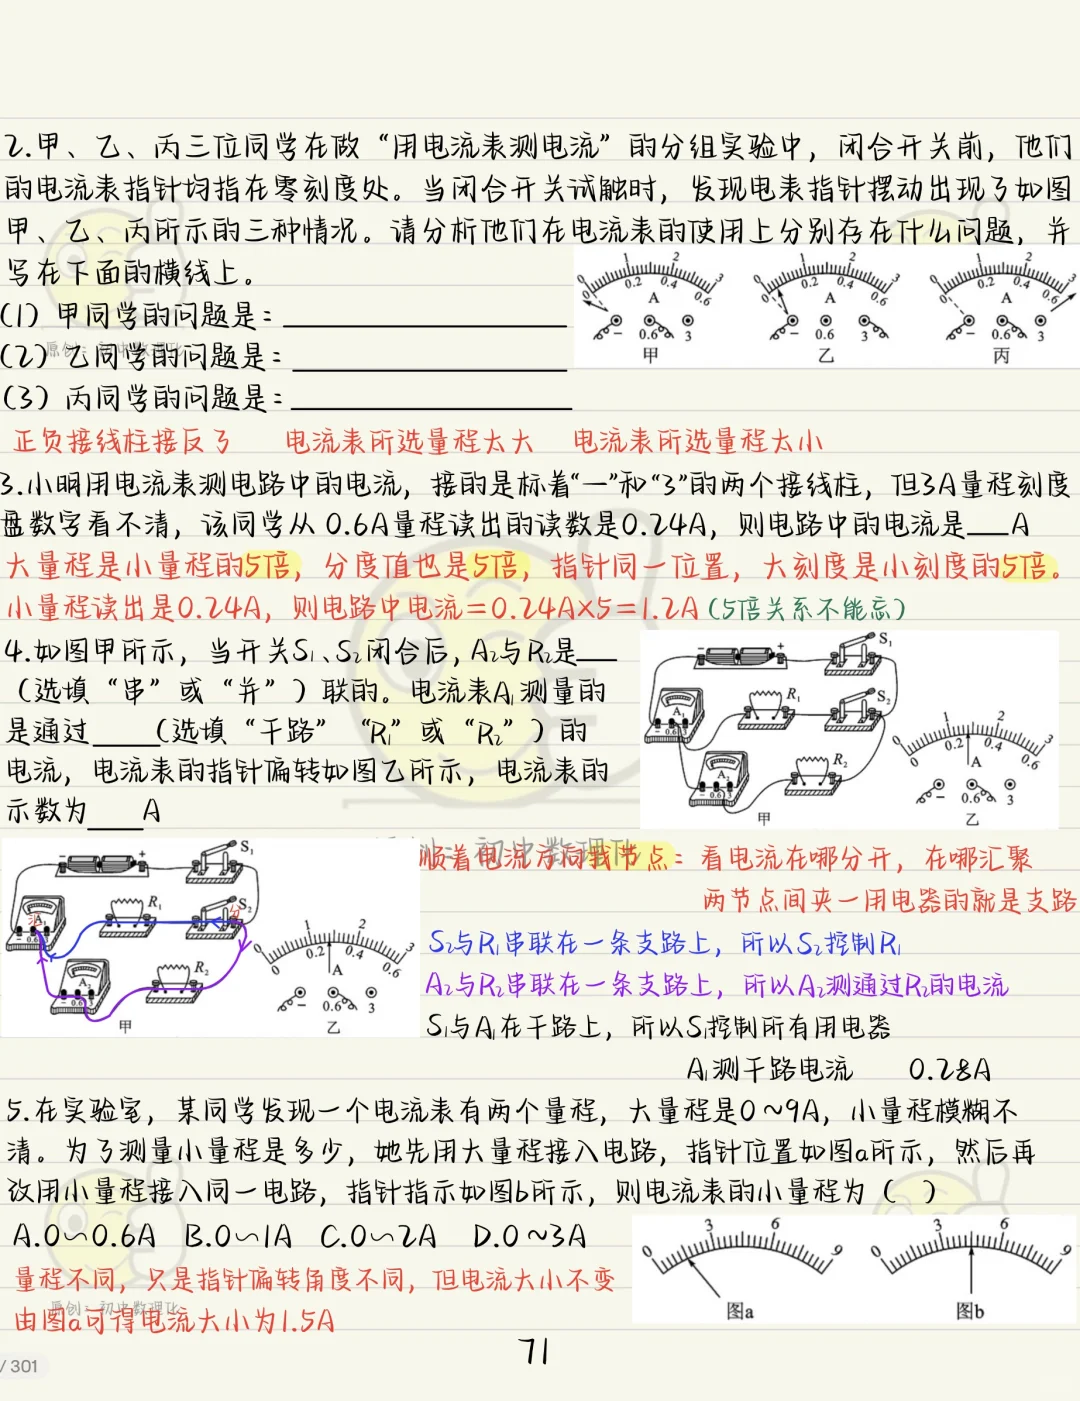 2.甲、乙、丙三位同学在做“用电流表测电流”的分组实验中，闭合开关前，他们
的电流表指针均指在零刻度处。当闭合开关试触时，发现电表指针摆动出现了如图
甲、乙、丙所示的三种情况。请分析他们在电流表的使用上分别存在什么问题，并
写在下面的横线上。
0 1 2 3
0 0.2 0.4 0.6
A
− 0.6 3
甲
0 1 2 3
0 0.2 0.4 0.6
A
− 0.6 3
乙
0 1 2 3
0 0.2 0.4 0.6
A
− 0.6 3
丙
(1) 甲同学的问题是：
原创：初中数理化
(2) 乙同学的问题是：
(3) 丙同学的问题是：
正负接线柱接反了 电流表所选量程太大 电流表所选量程太小
3.小明用电流表测电路中的电流，接的是标着“一”和“3”的两个接线柱，但3A量程刻度
盘数字看不清，该同学从0.6A量程读出的读数是0.24A，则电路中的电流是___A
大量程是小量程的5倍，分度值也是5倍，指针同一位置，大刻度是小刻度的5倍。
小量程读出是0.24A，则电路中电流＝0.24A×5＝1.2A（5倍关系不能忘）
4.如图甲所示，当开关S₁、S₂闭合后，A₂与R₂是___
（选填“串”或“并”）联的。电流表A₁测量的
是通过____(选填“干路”“R₁”或“R₂”）的
电流，电流表的指针偏转如图乙所示，电流表的
示数为___A
− + S₁
R₁ S₂
A₁
− 0.6 3
R₂
A₂
− 0.6 3
甲
0 1 2 3
0 0.2 0.4 0.6
A
− 0.6 3
乙
原创：初中数理化
顺着电流方向找节点：看电流在哪分开，在哪汇聚
两节点间夹一用电器的就是支路
S₂与R₁串联在一条支路上，所以S₂控制R₁
A₂与R₂串联在一条支路上，所以A₂测通过R₂的电流
S₁与A₁在干路上，所以S₁控制所有用电器
A₁测干路电流 0.28A
− + S₁
R₁ S₂
分
汇
− 0.6 3
R₂
A₂
− 0.6 3
甲
0 1 2 3
0 0.2 0.4 0.6
A
− 0.6 3
乙
5.在实验室，某同学发现一个电流表有两个量程，大量程是0～9A，小量程模糊不
清。为了测量小量程是多少，她先用大量程接入电路，指针位置如图a所示，然后再
改用小量程接入同一电路，指针指示如图b所示，则电流表的小量程为（ ）
A.0～0.6A B.0～1A C.0～2A D.0～3A
0 3 6 9
图a
0 3 6 9
图b
量程不同，只是指针偏转角度不同，但电流大小不变
原创：初中数理化
由图a可得电流大小为1.5A
71
/ 301